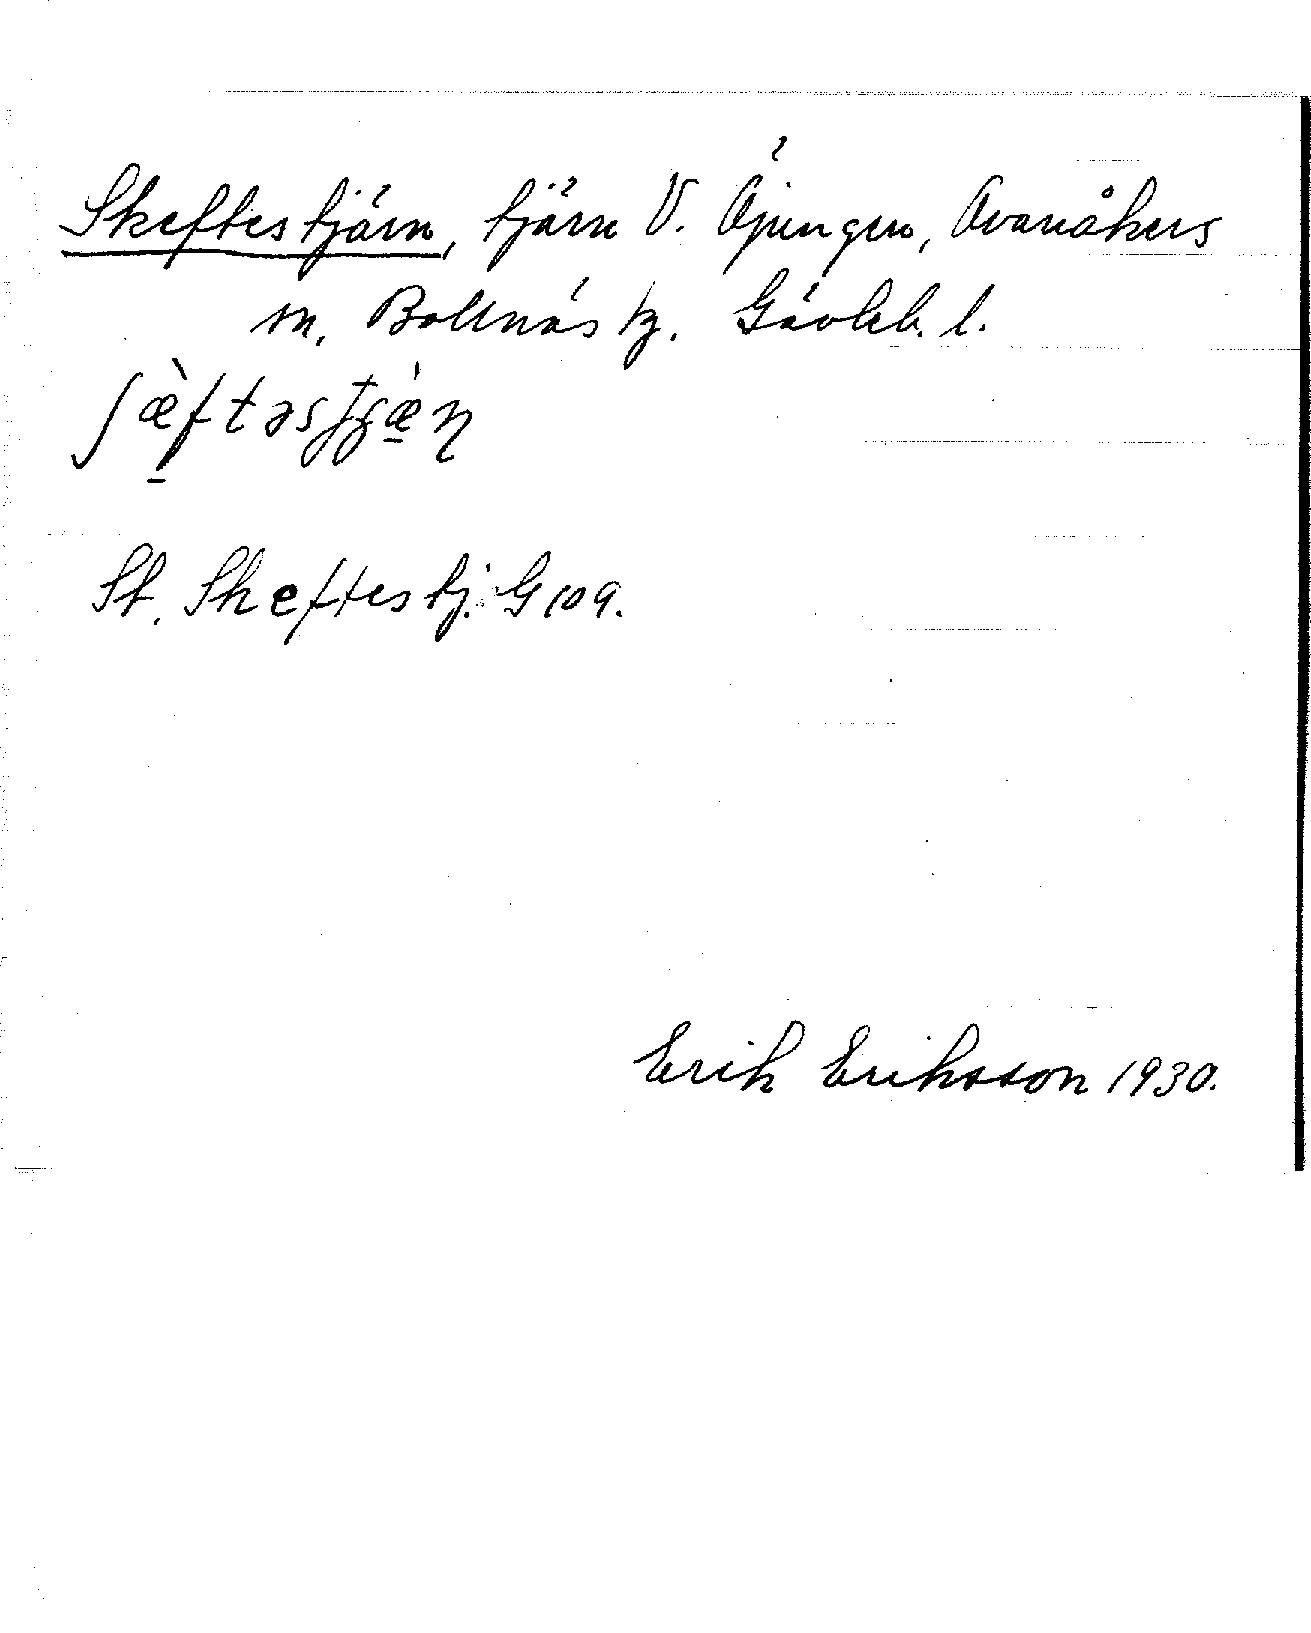 Skeftestjärn, tjärn V. Öjungen, Ovanåkers
sn. Bollnäs tg. Gävleb. l.
St. Skeftestj. G 109.
Erik Eriksson 1930.